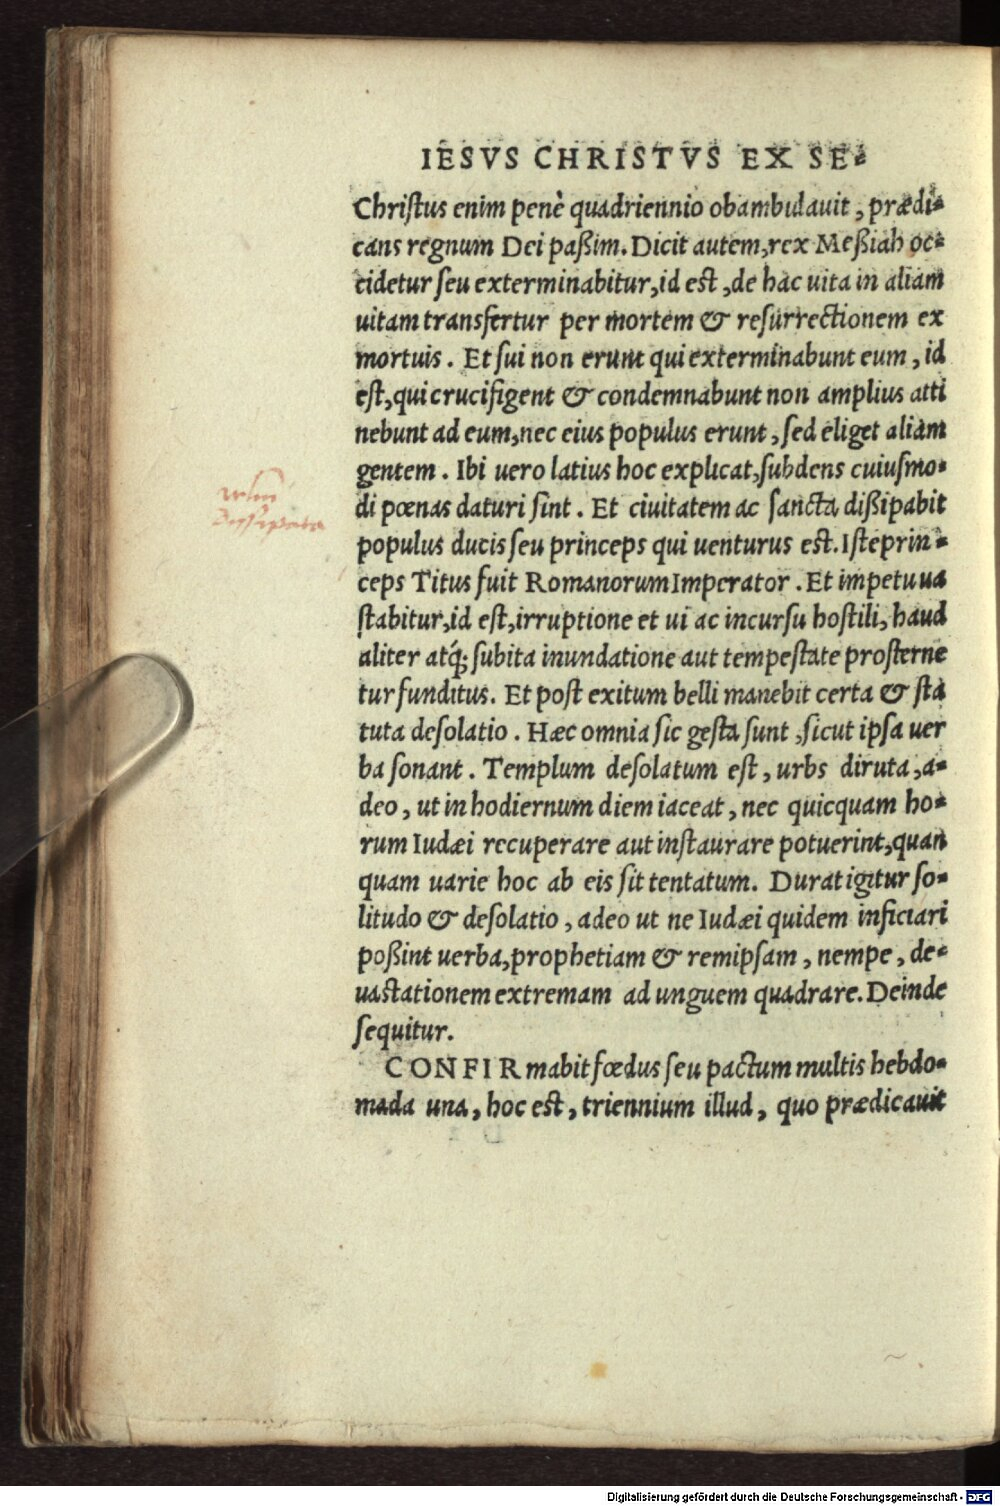 IESVS CHRISTVS EX SE⸗
Chriſtus enim penè quadriennio obambulauit, prædi⸗
cans regnum Dei paßim. Dicit autem, rex Meßiah oc⸗
cidetur ſeu exterminabitur, id eſt, de hac uita in aliam
uitam transfertur per mortem & reſurrectionem ex
mortuis. Et ſui non erunt qui exterminabunt eum, id
eſt, qui crucifigent & condemnabunt non amplius atti
nebunt ad eum, nec eius populus erunt, ſed eliget aliam
gentem. Ibi uero latius hoc explicat, ſubdens cuiuſmo⸗
di pœnas daturi ſint. Et ciuitatem ac ſancta dißipabit
populus ducis ſeu princeps qui uenturus eſt. Iſte prin⸗
ceps Titus fuit Romanorum Imperator. Et impetu ua
ſtabitur, id eſt, irruptione et ui ac incurſu hoſtili, haud
aliter atq́; ſubita inundatione aut tempeſtate proſterne
tur funditus. Et poſt exitum belli manebit certa & ſta
tuta deſolatio. Hæc omnia ſic geſta ſunt, ſicut ipſa uer
ba ſonant. Templum deſolatum eſt, urbs diruta, a⸗
deo, ut in hodiernum diem iaceat, nec quicquam ho⸗
rum Iudæi recuperare aut inſtaurare potuerint, quan
quam uarie hoc ab eis ſit tentatum. Durat igitur ſo⸗
litudo & deſolatio, adeo ut ne Iudæi quidem inficiari
poßint uerba, prophetiam & rem ipſam, nempe, de⸗
uaſtationem extremam ad unguem quadrare. Deinde
ſequitur.
CONFIRmabit fœdus ſeu pactum multis hebdo⸗
mada una, hoc eſt, triennium illud, quo prædicauit
Digitalisierung gefördert durch die Deutsche Forschungsgemeinschaft - DFG